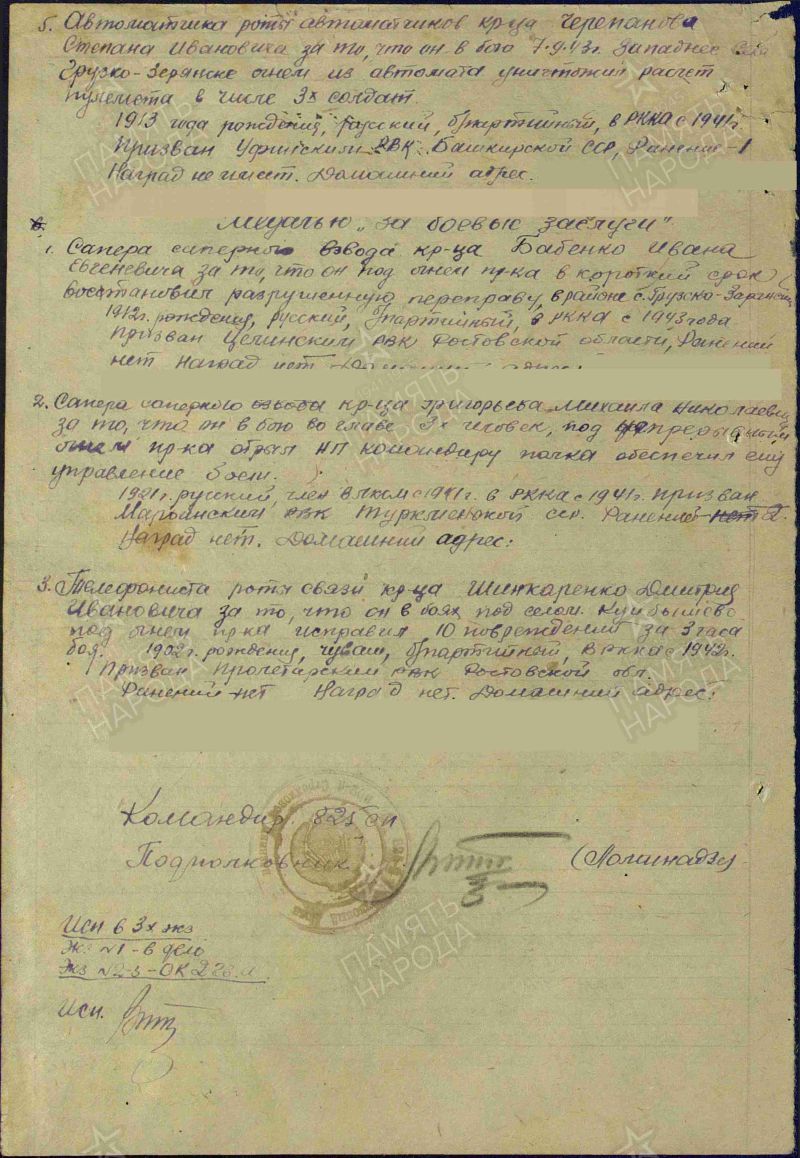 5. Автоматчика роты автоматчиков кр-ца Черепанова
Степана Ивановича за то, что он в бою 7.9.43г. Западнее
Грузко-Зерянске огнем из автомата уничтожил расчет
пулемета в числе 3х солдат.
1913 года рождения, русский, б/партийный, в РККА с 1941г.
Призван Уфимским РВК Башкирской ССР, Ранение-1
Наград не имеет. Домашний адрес.
Медалью „За боевые заслуги".
1. Сапера саперного взвода кр-ца Бабенко Ивана
Евгеневича за то, что он под огнем пр-ка в короткий срок
восстановил разрушенную переправу, в районе с. Грузско-
1912г. рождения, русский, б/партийный, в РККА с 1943 года
Призван Целинским РВК Ростовской области, Ранений
нет Наград нет Домашний адрес:
2. Сапера саперного взвода кр-ца Григорьева Михаила Николаевич
за то, что он в бою во главе 3х человек, под
огнем пр-ка отрыл НП командиру полка обеспечил ему
управление боем.
1921г. русский, член ВЛКСМ с 1941г. в РККА с 1941г. призван
РВК Туркменской ССР. Ранений нет 2.
Наград нет. Домашний адрес:
3. Телефониста роты связи кр-ца Шинкаренко Дмитрия
Ивановича за то, что он в боях под селом Куйбышево
под огнем пр-ка исправил 10 повреждений за 3 часа
боя. 1902г. рождения, чуваш, б/партийный, в РККА с 1942г.
Призван Пролетарским РВК Ростовской обл.
Ранений нет Наград нет. Домашний адрес:
Командир 825 сп
Подполковник
Исп в 3х экз
Экз №1 - в дело
Экз №2-3 - ОК
Исп.
ПАМЯТЬ
НАРОДА